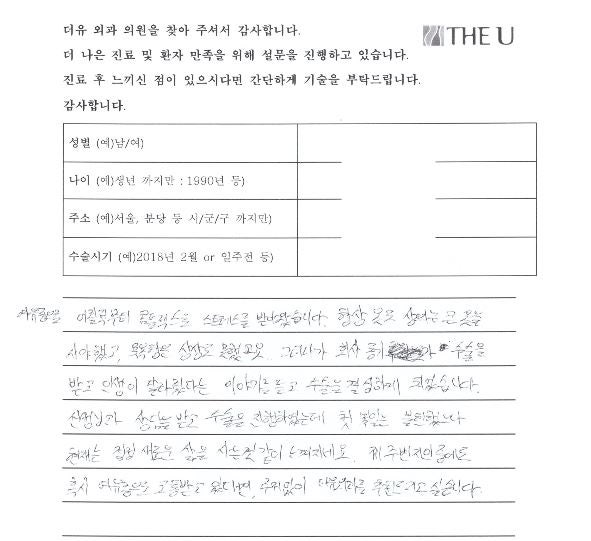 더유 외과 의원을 찾아 주셔서 감사합니다.
THE U
더 나은 진료 및 환자 만족을 위해 설문을 진행하고 있습니다.
진료 후 느끼신 점이 있으시다면 간단하게 기술을 부탁드립니다.
감사합니다.
성별 (예)남/여)
나이 (예)생년 까지만 : 1990년 등)
주소 (예)서울, 분당 등 시/군/구 까지만)
수술시기 (예)2018년 2월 or 일주전 등)
어릴적부터 콤플렉스로 스트레스를 받아왔습니다. 항상 옷도 상의는 큰 옷을
사야했고, 목욕탕은 상상도 못했고요. 그러다가 회사 동기 가 수술을
받고 인생이 달라졌다는 이야기를 듣고 수술을 결심하게 되었습니다.
상담을 받고 수술을 진행하였는데 첫 몇일은 불편했으나
현재는 정말 새로운 삶을 사는것 같이 느껴지네요. 제 주변지인중에도
혹시 여유증으로 고통받고 있다면, 더유외과를 추천드리고 싶습니다.